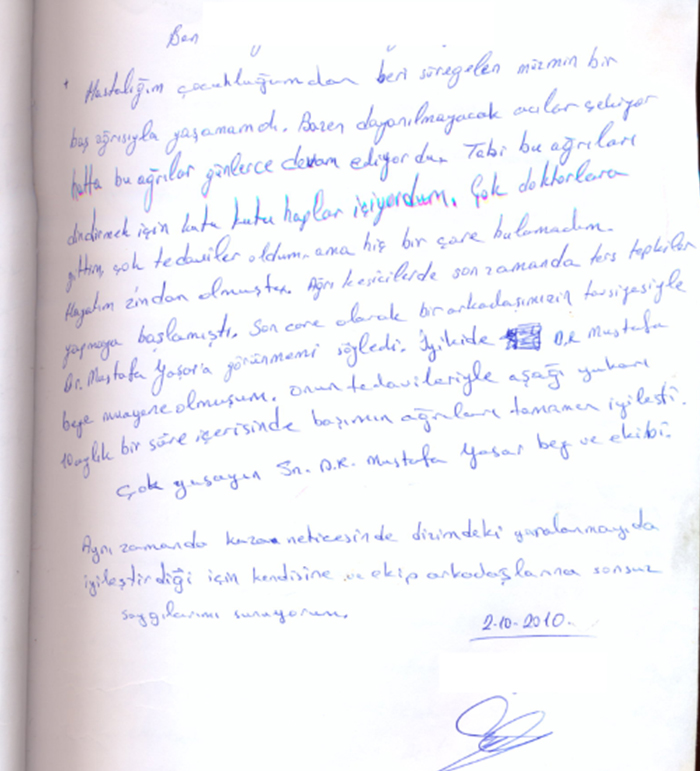 Ben
Hastalığım çocukluğumdan beri süregelen müzmin bir
baş ağrısıyla yaşamamdı. Bazen dayanılmayacak acılar çekiyor
hatta bu ağrılar günlerce devam ediyordu. Tabi bu ağrıları
dindirmek için kutu kutu haplar içiyordum. Çok doktorlara
gittim, çok tedaviler oldum, ama hiç bir çare bulamadım.
Hayatım zindan olmuştu. Ağrı kesicilerde son zamanda ters tepkiler
yapmaya başlamıştı. Son care olarak bir arkadaşımızın tavsiyesiyle
Dr. Mustafa Yaşar'a görünmemi söyledi. İyikide D.R Mustafa
beye muayene olmuşum. onun tedavileriyle aşağı yukarı
10 aylık bir süre içerisinde başımın ağrıları tamamen iyileşti.
Çok yaşayın Sn. D.R. Mustafa Yaşar bey ve ekibi.
Aynı zamanda kaza neticesinde dizimdeki yaralanmayıda
iyileştirdiği için kendisine ve ekip arkadaşlarına sonsuz
saygılarımı sunuyorum.
2-10-2010.